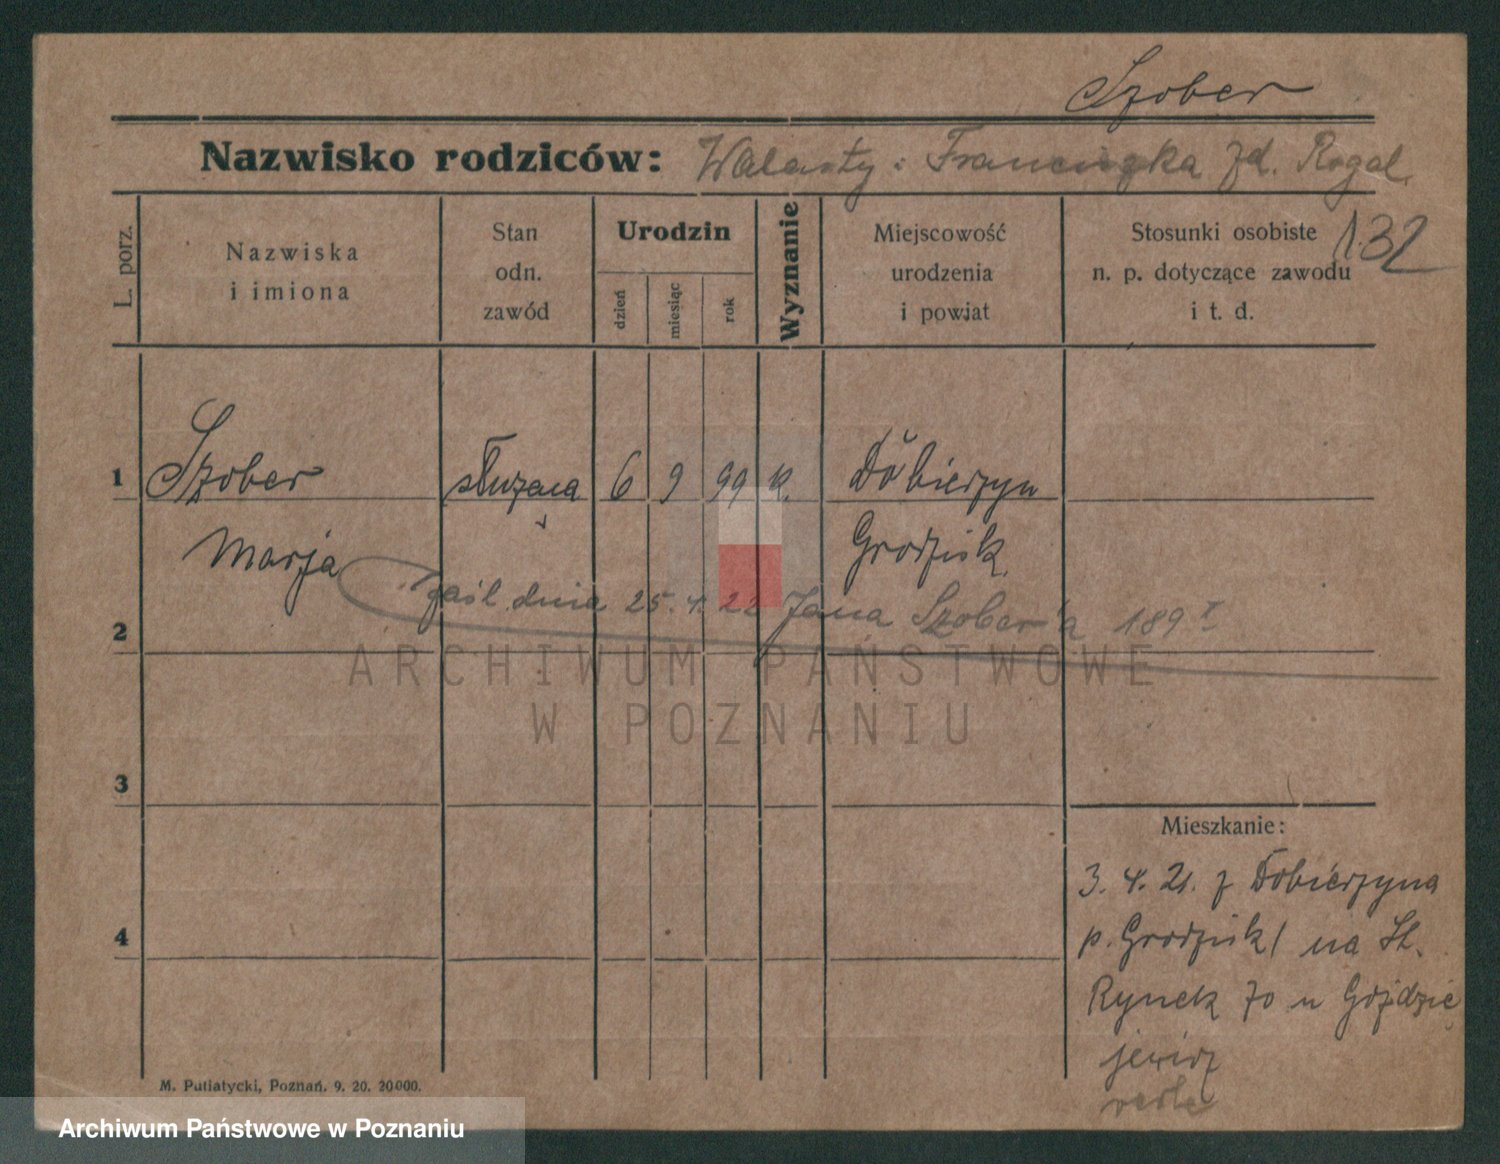 Szober
Nazwisko rodziców: Walanty i Franciszka zd. Rogal
132
L. porz.
Nazwiska
i imiona
Stan
odn.
zawód
Urodzin
dzień
miesiąc
rok
Wyznanie
Miejscowość
urodzenia
i powiat
Stosunki osobiste
n. p. dotyczące zawodu
i t. d.
1 Szober służąca 6 9 99 k. Dobierzyn
Marja Grodzisk
zaśl. dnia 25. 4. 22 Jana Szober'a 189
2
ARCHIWUM PAŃSTWOWE
W POZNANIU
3
Mieszkanie:
3. 4. 21. z Dobierzyna
4
p. Grodzisk/ na St.
Rynek 70 u Goździe
jewicz
M. Putiatycki, Poznań. 9. 20. 20000.
Archiwum Państwowe w Poznaniu